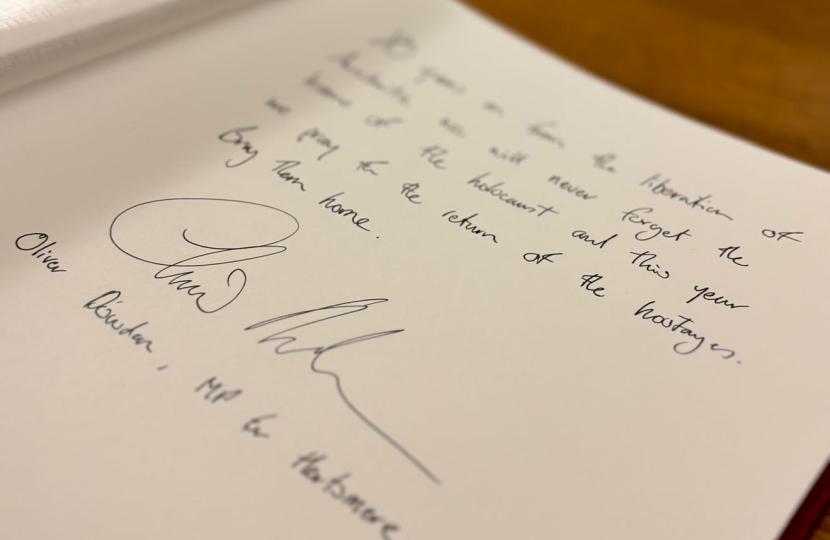 80 years on from the liberation of
Auschwitz we will never forget the
horrors of the holocaust and this year
we pray for the return of the hostages.
Bring them home.
Oliver Dowden, MP for Hertsmere